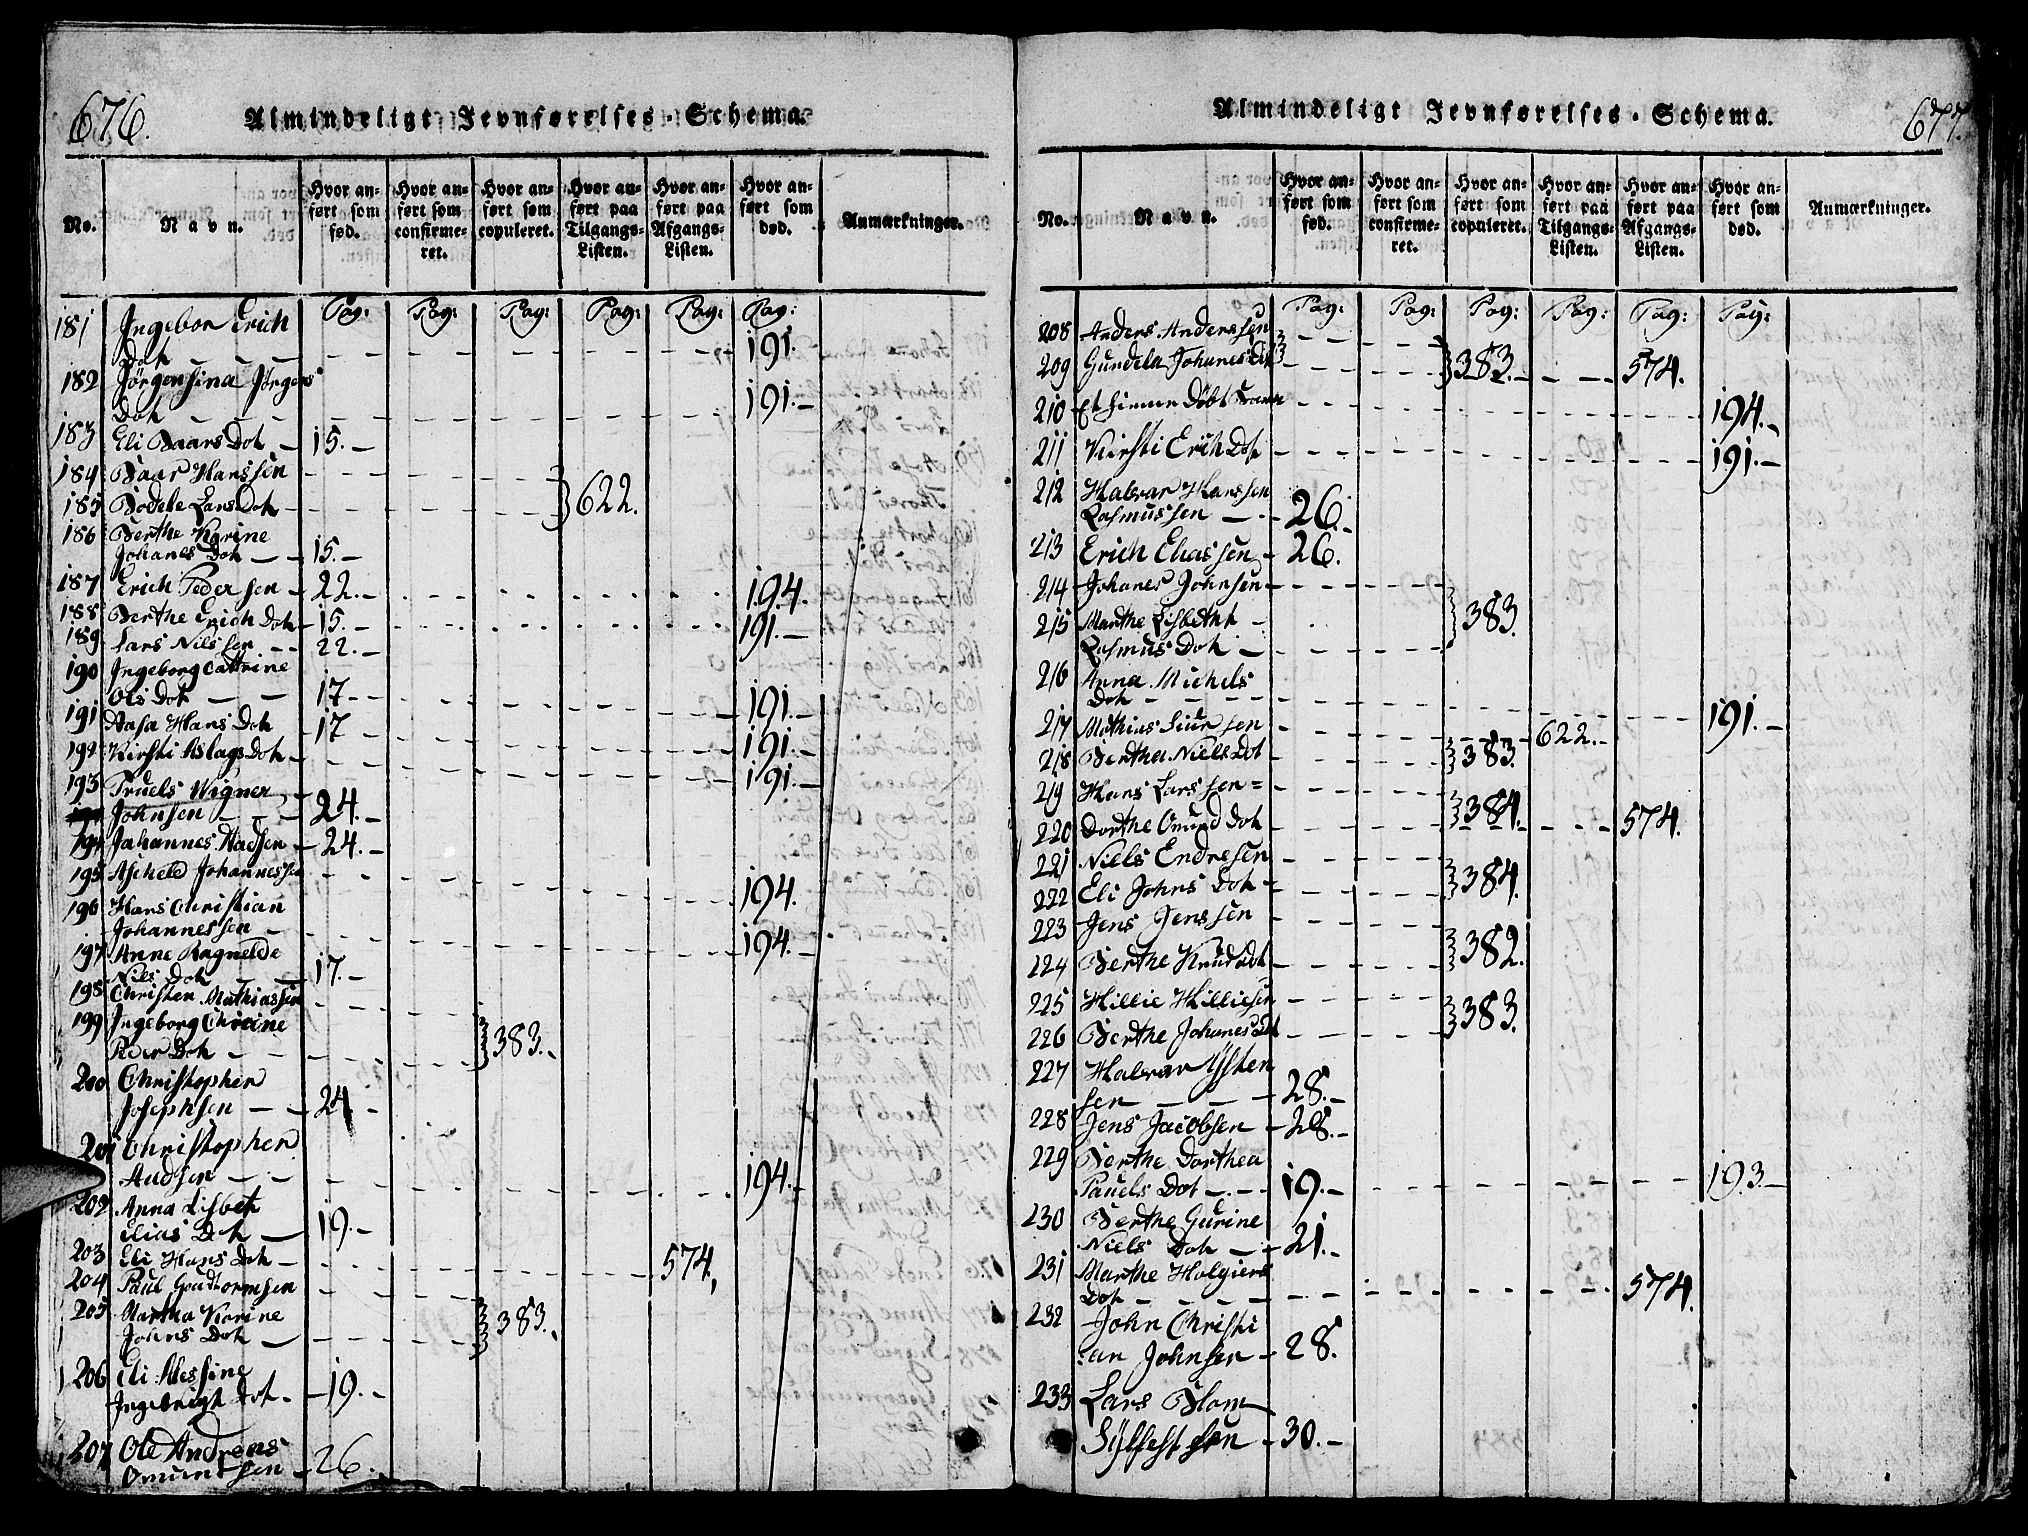 676.
Almindeligt Jevnførelses-Schema.
No. Navn. Hvor anført som fød. Hvor anført som confirmeret. Hvor anført som copuleret. Hvor anført paa Tilgangs-Listen. Hvor anført paa Afgangs-Listen. Hvor anført som død. Anmærkninger.
Pag: Pag: Pag: Pag: Pag: Pag:
181 Ingebor Erich
Dot 191.
182 Jörgensina Jörgens
Dot 191.
183 Eli Baars Dot 15.
184 Baar Hanssen
185 Bodele Lars Dot } 622.
186 Berthe Karine
Johanes Dot 15.
187 Erich Pedersen 22. 194.
188 Berthe Erich Dot 15. 191.
189 Lars Nilssen 22.
190 Ingeborg Cattrine
Ols Dot 17. 191.
191 Aasa Hans Dot 17 191.
192 Kirsti Aslags Dot 191.
193 Truels Wigner
Johnsen 24.
194 Johannes Aadsen 24.
195 Ascheld Johannessen 194.
196 Hans Christian
Johannessen 194.
197 Anne Ragnelde
Niels Dot 17.
198 Christen Mathiassen
199 Ingeborg Chirine
Peder Dot } 383.
200 Christopher
Josephsen 24.
201 Christopher
Audsen 194.
202 Anna Lisbet
Elias Dot 19.
203 Eli Hans Dot 574,
204 Paul Goudtormsen
205 Martha Karine
Johns Dot } 383.
206 Eli Messine
Ingebrigt Dot 19.
207 Ole Andreas
Omundsen 26.
677.
Almindeligt Jevnførelses-Schema.
No. Navn. Hvor anført som fød. Hvor anført som confirmeret. Hvor anført som copuleret. Hvor anført paa Tilgangs-Listen. Hvor anført paa Afgangs-Listen. Hvor anført som død. Anmærkninger.
Pag: Pag: Pag: Pag: Pag: Pag:
208 Anders Anderssen
209 Gundela Johanes Dt } 383. 574.
210 Et Døbt 194.
211 Kirsti Erich Dot 191.
212 Halvar Hanssen
Rasmussen 26.
213 Erich Eliassen 26.
214 Johanes Johnsen
215 Marthe Lisbetht
Rasmus Dot } 383.
216 Anna Michels
Dot 191.
217 Mathias Siursen 622.
218 Berthe Niels Dot } 383.
219 Hans Larssen
220 Dorthe Omund Dot } 384. 574.
221 Niels Endresen
222 Eli Johns Dot } 384.
223 Jens Jenssen
224 Berthe Knud Dt } 382.
225 Hillie Hilliesen
226 Berthe Johanes Dt } 383.
227 Halvar Østen
sen 28.
228 Jens Jacobsen 28.
229 Berthe Dorthea
Pauels Dot 19. 193.
230 Berthe Gurine
Niels Dot 21.
231 Marthe Holgiers
Dot 574.
232 John Christi
an Johnsen 28.
233 Lars Blom
Sylfestsen 30.